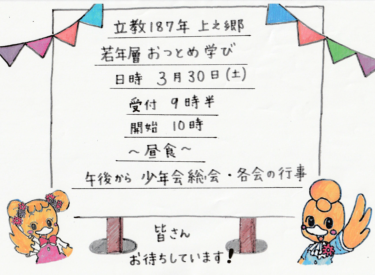 立教187年 上之郷
若年層 おつとめ学び
日時 3月30日(土)
受付 9時半
開始 10時
～昼食～
午後から 少年会総会・各会の行事
皆さん
お待ちしています!